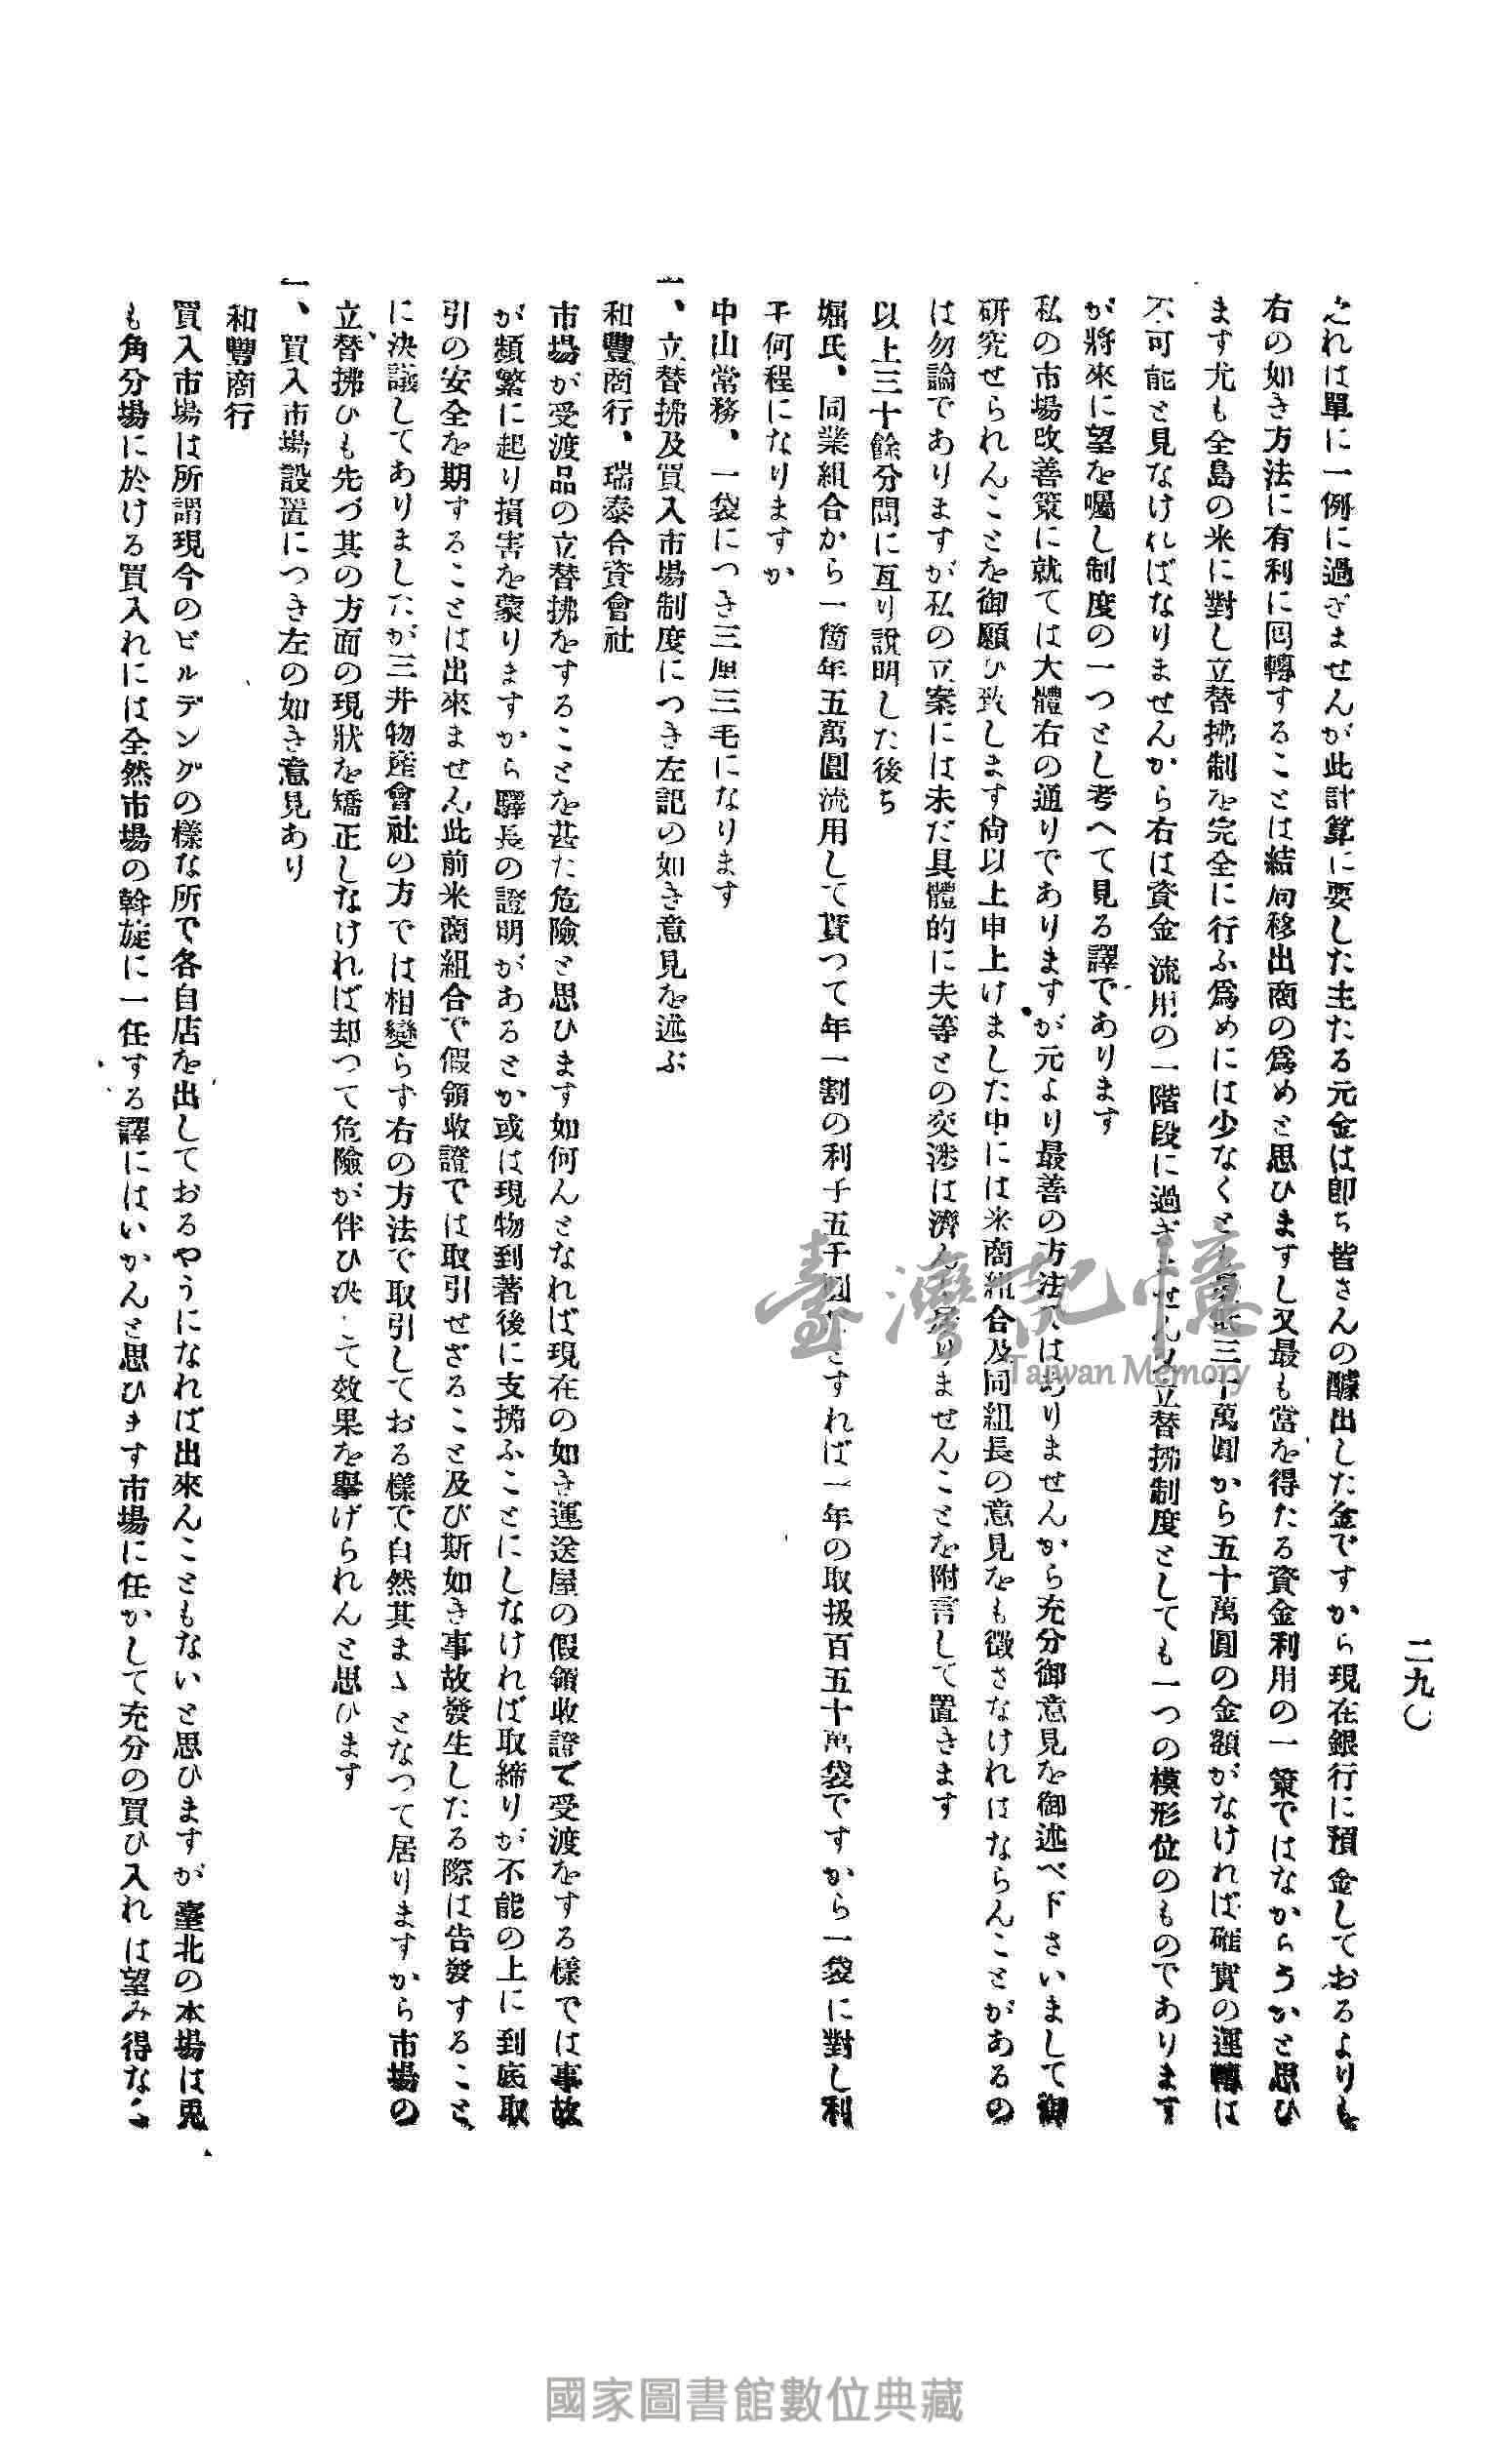 二九〇
之れは單に一例に過ぎませんが此計算に要した主たる元金は卽ち皆さんの醵出した金ですから現在銀行に預金しておるよりも
右の如き方法に有利に囘轉することは結局移出商の爲めと思ひますし又最も當を得たる資金利用の一策ではなからうかと思ひ
ます尤も全島の米に對し立替拂制を完全に行ふ爲めには少なくと三十萬圓から五十萬圓の金額がなければ確實の運轉は
不可能と見なければなりませんから右は資金流用の一階段に過ぎません又立替拂制度としても一つの模形位のものであります
が將來に望を囑し制度の一つとし考へて見る譯であります
私の市場改善策に就ては大體右の通りでありますが元より最善の方法ではありませんから充分御意見を御述べ下さいまして御
研究せられんことを御願ひ致します尙以上申上げました中には米商組合及同組長の意見をも徵さなければならんことがあるの
は勿論でありますが私の立案には未だ具體的に夫等との交涉は濟んで居りませんことを附言して置きます
以上三十餘分間に亙り說明した後ち
堀氏、同業組合から一箇年五萬圓流用して貰つて年一割の利子五千圓とすれば一年の取扱百五十萬袋ですから一袋に對し利
子何程になりますか
中山常務、一袋につき三厘三毛になります
一、立替拂及買入市場制度につき左記の如き意見を述ぶ
和豐商行、瑞泰合資會社
市場が受渡品の立替拂をすることを甚た危險と思ひます如何んとなれば現在の如き運送屋の假領收證で受渡をする樣では事故
が頻繁に起り損害を蒙りますから驛長の證明があるとか或は現物到著後に支拂ふことにしなければ取締りが不能の上に到底取
引の安全を期することは出來ません此前米商組合で假領收證では取引せざること及び斯如き事故發生したる際は告發すること
に決議してありましたが三井物產會社の方では相變らず右の方法で取引しておる樣で自然其まゝとなつて居りますから市場の
立替拂ひも先づ其の方面の現狀を矯正しなければ却つて危險が伴ひ決して效果を擧げられんと思ひます
一、買入市場設置につき左の如き意見あり
和豐商行
買入市場は所謂現今のビルデングの樣な所で各自店を出しておるやうになれば出來んこともないと思ひますが臺北の本場は兎
も角分場に於ける買入れには全然市場の斡旋に一任する譯にはいかんと思ひます市場に任かして充分の買ひ入れは望み得な
臺灣記憶
Taiwan Memory
國家圖書館數位典藏